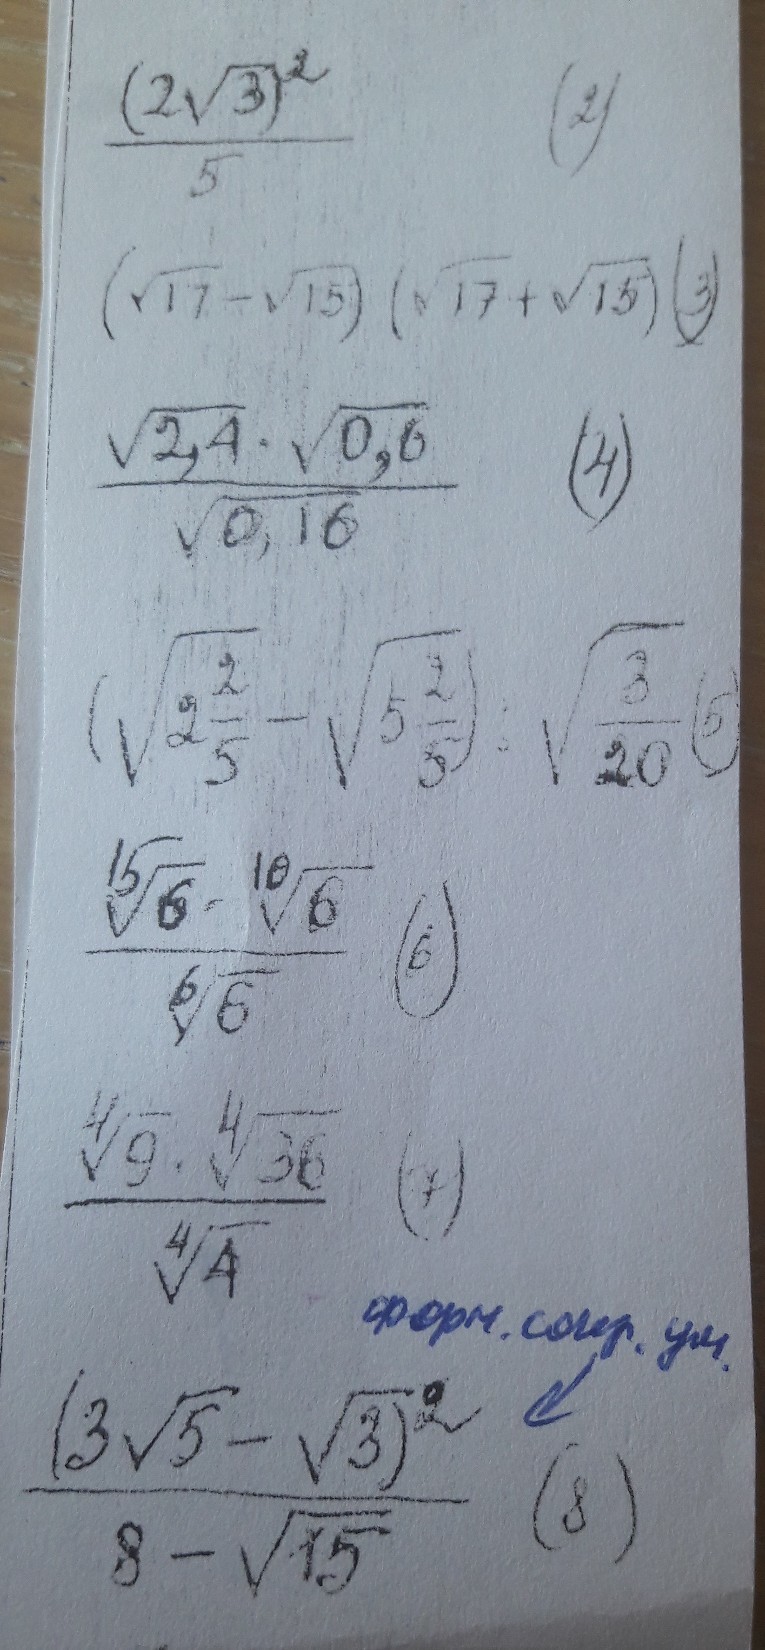 (2√3)² / 5 (2)
(√17 - √15) (√17 + √15) (3)
√2,4 · √0,6 / √0,16 (4)
(√2 2/5 - √5 2/5) : √3/20 (5)
¹⁵√6 · ¹⁰√6 / ⁶√6 (6)
⁴√9 · ⁴√36 / ⁴√4 (7)
форм. сокр. ум.
(3√5 - √3)² / 8 - √15 (8)